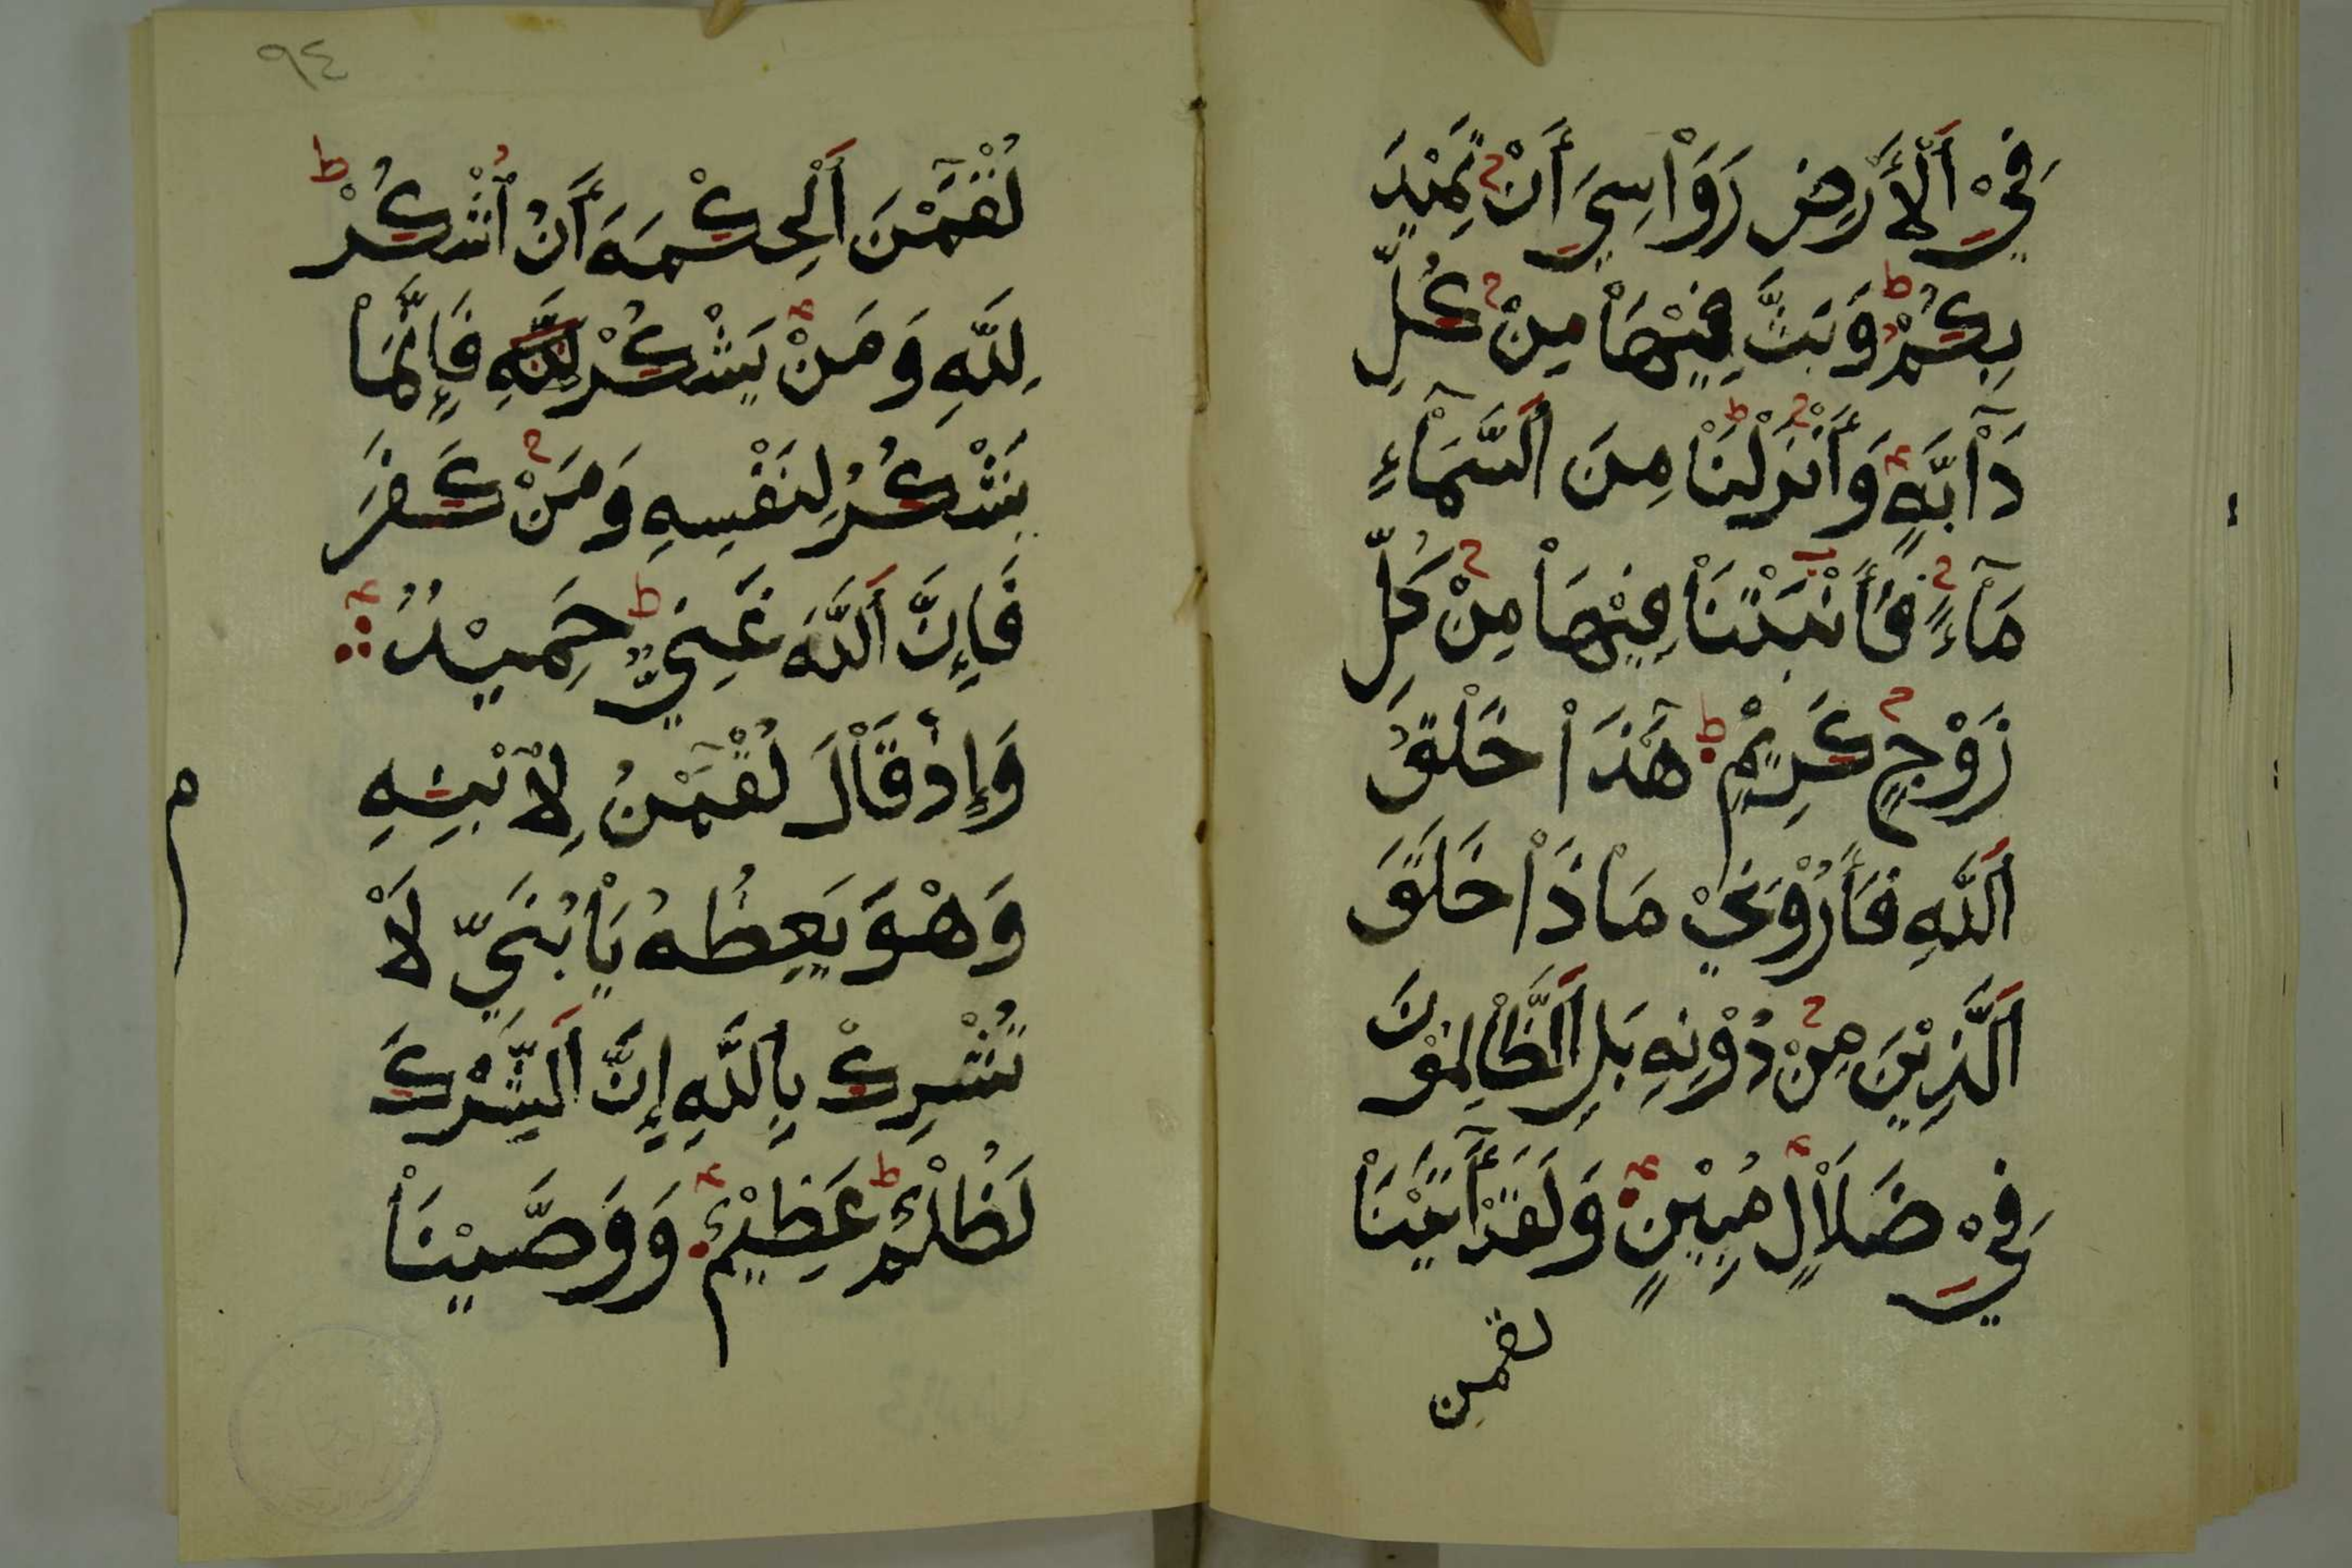 فِيْ اَلْأَرْضِ رَوَاْسِيَ أَنْ تَمِيْدَ
بِكُمْ وَبَثَّ فِيْهَاْ مِنْ كُلِّ
دَآبَّةٍ وَأَنْزَلْنَاْ مِنَ اَلسَّمَآءِ
مَآءً فَأَنْبَتْنَاْ فِيْهَاْ مِنْ كُلِّ
زَوْجٍ كَرِيْمٍ هَٰذَاْ خَلْقُ
اَللَّهِ فَأَرُوْنِيْ مَاْذَاْ خَلَقَ
اَلَّذِيْنَ مِنْ دُوْنِهِ بَلِ اَلظَّاْلِمُوْنَ
فِيْ ضَلَاْلٍ مُبِيْنٍ وَلَقَدْ آتَيْنَاْ
لقمن
٩٤
لُقْمَٰنَ اَلْحِكْمَةَ أَنُ اُشْكُرْ
لِلَّهِ وَمَنْ يَشْكُرْ لِلَّهِ فَإِنَّمَاْ
يَشْكُرُ لِنَفْسِهِ وَمَنْ كَفَرَ
فَإِنَّ اَللَّهَ غَنِيٌّ حَمِيْدٌ
وَإِذْ قَاْلَ لُقْمَٰنُ لِاْبْنِهِ
وَهْوَ يَعِظُهُ يَاْبُنَيِّ لَاْ
تُشْرِكْ بِاللَّهِ إِنَّ اَلشِّرْكَ
لَظُلْمٌ عَظِيْمٌ وَوَصَّيْنَاْ
م